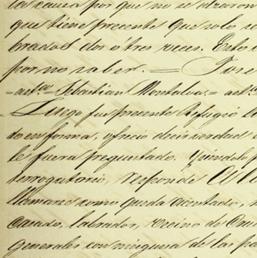 la causa por que no se
que tiene presente que solo
bradas dos ó tres veces. Esto
por no saber. =
Sebastian Montalvo =
Luego fue presente Refugio
en forma, ofreció decir verdad
le fuera preguntado. Y siendolo
terrogatorio, responde
llamarse como queda asentado,
casado, labrador, vecino de
generales con ninguna de las